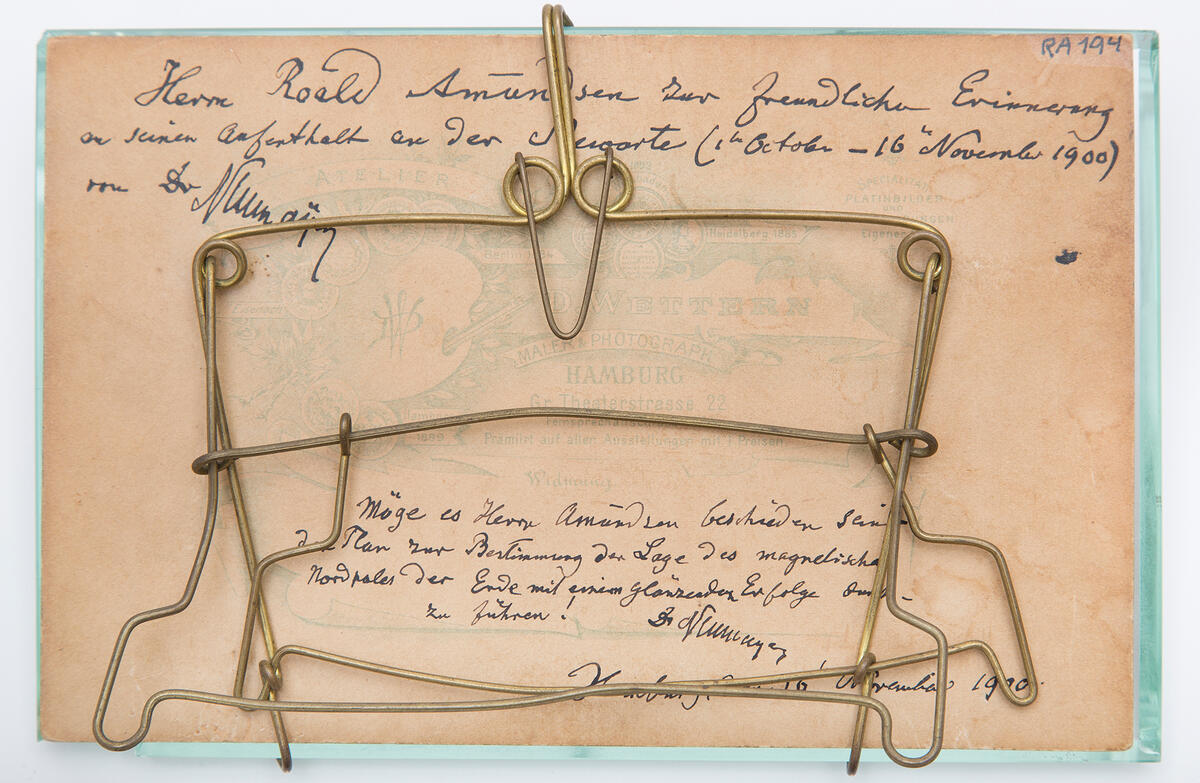 RA 194
Herrn Roald Amundsen zur freundlichen Erinnerung
an seinen Aufenthalt an der Seewarte (1ten October – 16ten November 1900)
von Dr Neumayer
ATELIER
SPECIALITÄT
PLATINBILDER
UND
Heidelberg 1885
Eigene
Berlin
D. WETTERN
MALER & PHOTOGRAPH
HAMBURG
Gr. Theaterstrasse 22
Fernsprechanschluss
1889
Prämiirt auf allen Ausstellungen mit I Preisen.
Widmung
Möge es Herrn Amundsen beschieden sein
den Plan zur Bestimmung der Lage des magnetischen
Nordpoles der Erde mit einem glänzenden Erfolge durch-
zu führen!
Dr Neumayer
Hamburg 16 November 1900.